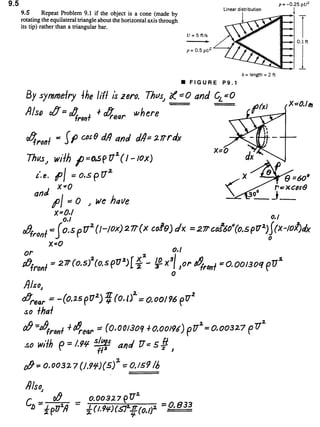 9.5
9.5 Repeat Problem 9.1 if the object is a cone (made by
rotating the equilateral triangle about the horizontal axis through
its tip) rather than a triangular bar.
Linear distribution
p = -0.25 ρU²
U = 5 ft/s
p = 0.5 ρU²
0.1 ft
b = length = 2 ft
■ FIGURE P9.1
By symmetry the lift is zero. Thus, ℒ=0 and C_L=0
Also 𝒟 = 𝒟front + 𝒟rear where
𝒟front = ∫p cosθ dA and dA = 2πr dx
Thus, with p = 0.5ρU²(1-10x)
i.e. p| = 0.5ρU²
x=0
and
p| = 0, we have
x=0.1
p(x)
x=0.1m
x=0
dx
x
θ=60°
r=xcosθ
30°
0.1
𝒟front = ∫0.5ρU²(1-10x)2π(x cos²θ)dx = 2πcos²60°(0.5ρU²)∫(x-10x²)dx
x=0
0
or
0.1
𝒟front = 2π(0.5)²(0.5ρU²)[x²/2 - 10/3 x³], or 𝒟front = 0.001309 ρU²
0
Also,
𝒟rear = -(0.25ρU²) π/4 (0.1)² = 0.00196 ρU²
so that
𝒟 = 𝒟front + 𝒟rear = (0.001309 + 0.00196) ρU² = 0.00327 ρU²
so with ρ = 1.94 slugs/ft³ and U = 5 ft/s,
𝒟 = 0.00327(1.94)(5)² = 0.159 lb
Also,
C_D = 𝒟/(½ρU²A) = 0.00327ρU²/(½(1.94)(5)² π/4 (0.1)²) = 0.833